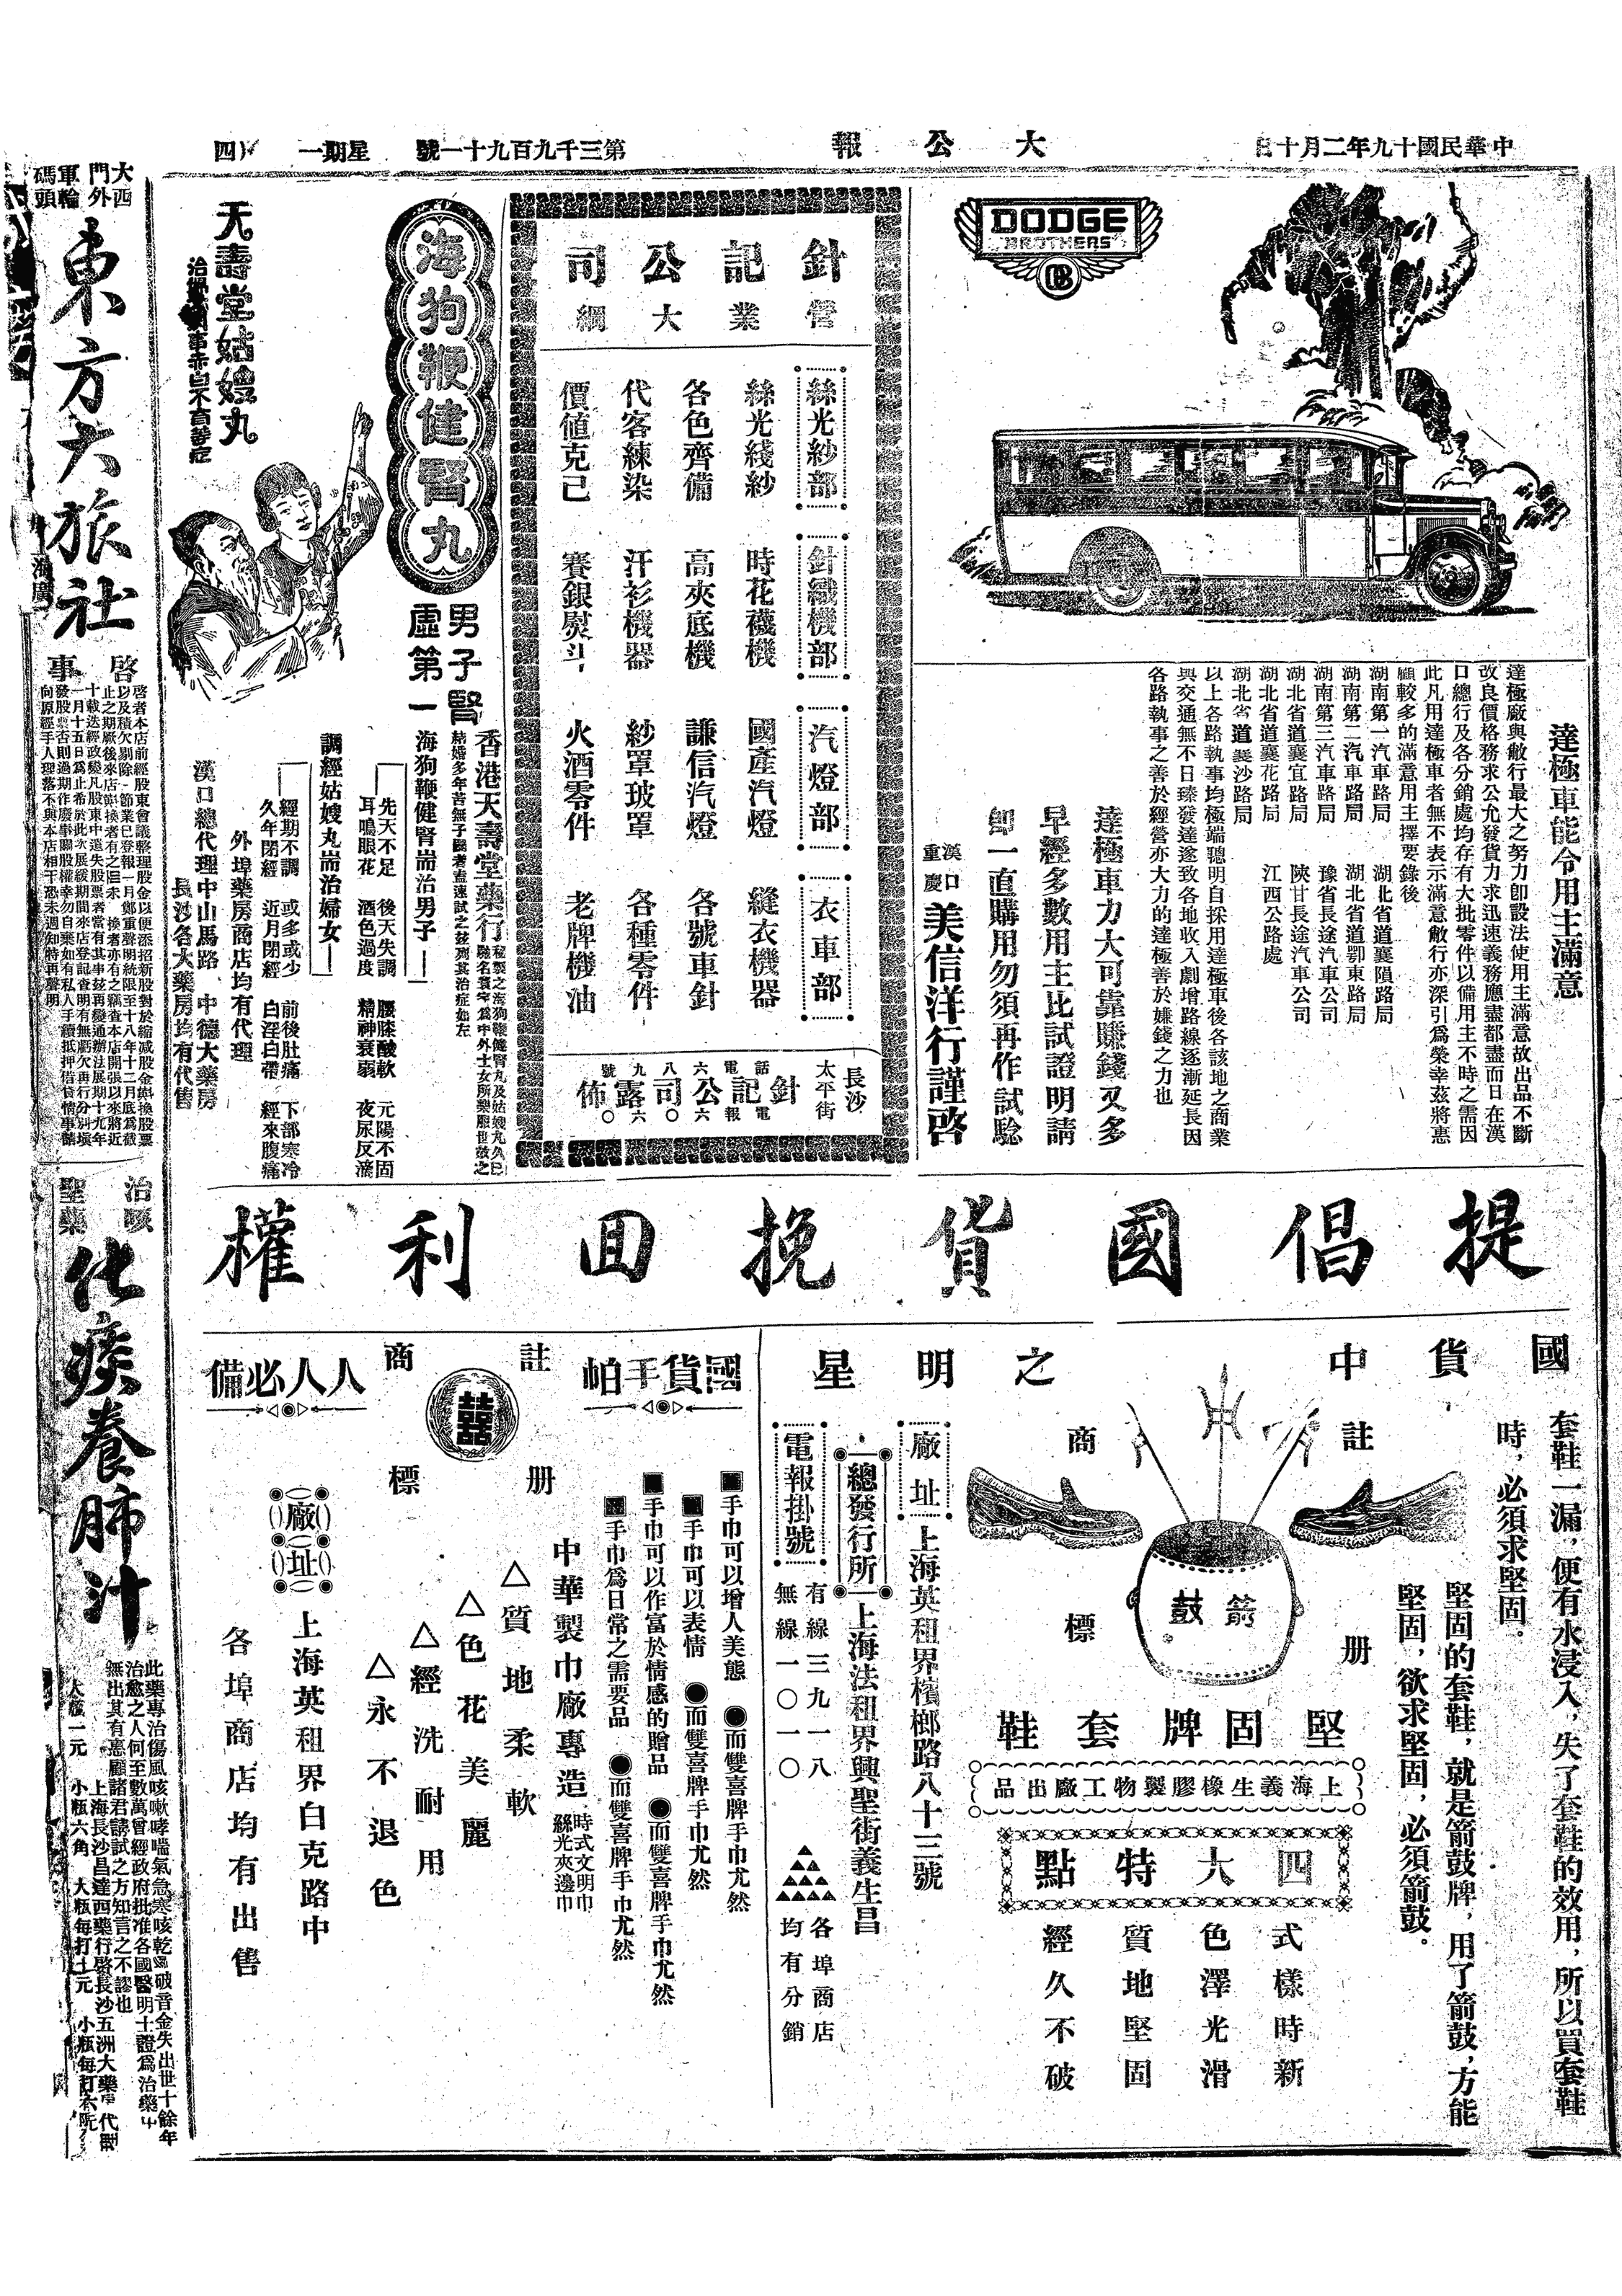 中華民國十九年二月十日
大公報
第三千九百九十一號
星期一
四
DODGE
BROTHERS
DB
達極車能令用主滿意
達極廠與敝行最大之努力卽設法使用主滿意故出品不斷
改良價格務求公允發貨力求迅速義務應盡都盡而日在漢
口總行及各分銷處均存有大批零件以備用主不時之需因
此凡用達極車者無不表示滿意敝行亦深引爲榮幸茲將惠
顧較多的滿意用主擇要錄後
湖南第一汽車路局　湖北省道襄隕路局
湖南第二汽車路局　湖北省道鄂東路局
湖南第三汽車路局　豫省長途汽車公司
湖北省道襄宜路局　陝甘長途汽車公司
湖北省道襄花路局　江西公路處
湖北省道襄沙路局
以上各路執事均極端聰明自採用達極車後各該地之商業
與交通無不日臻發達遂致各地收入劇增路線逐漸延長因
各路執事之善於經營亦大力的達極善於嫌錢之力也
達極車力大可靠賺錢又多
早經多數用主比試證明請
卽一直購用勿須再作試驗
漢口
重慶
美信洋行謹啓
針記公司
營業大綱
絲光紗部
絲光綫紗
各色齊備
代客練染
價值克己
針織機部
時花襪機
高夾底機
汗衫機器
賽銀熨斗
汽燈部
國產汽燈
謙信汽燈
紗罩玻罩
火酒零件
衣車部
縫衣機器
各號車針
各種零件
老牌機油
長沙
太平街
電話六八九號
針記公司露佈
電報六〇六〇
海狗鞭健腎丸
男子腎
虛第一
天壽堂姑嫂丸
香港天壽堂藥行
結婚多年苦無子嗣者盍速試之茲列其治症如左
海狗鞭健腎耑治男子
先天不足　後天失調　腰膝酸軟　元陽不固
耳鳴眼花　酒色過度　精神衰弱　夜尿反滴
調經姑嫂丸耑治婦女
經期不調　或多或少　前後肚痛　下部寒冷
久年閉經　近月閉經　白淫白帶　經來腹痛
外埠藥房商店均有代理
漢口總代理中山馬路　中德大藥房
長沙各大藥房均有代售
大西
門外
軍輪
碼頭
東方大旅社
啓事
啓者本店前經股東會議整理股金以便添招新股對於縮減股金與換股票
向原經手人理落不與本店相干恐未週知特再聲明
治咳
聖藥
化痰養肺汁
此藥專治傷風咳嗽哮喘氣急寒咳乾嗆破音金失出世十餘年
治愈之人何至數萬曾經政府批准各國醫明士證爲治藥中
無出其有患顧諸君請試之方知言之不謬也
上海長沙昌達西藥行啓長沙五洲大藥房代售
大瓶一元　小瓶六角　大瓶每打十元
提倡國貨挽回利權
國貨中之明星
套鞋一漏，便有水浸入，失了套鞋的效用，所以買套鞋
時，必須求堅固。
堅固的套鞋，就是箭鼓牌，用了箭鼓，方能
堅固，欲求堅固，必須箭鼓。
註册商標
箭鼓
堅固牌套鞋
上海義生橡膠製物工廠出品
四大特點
式樣時新
色澤光滑
質地堅固
經久不破
廠址　上海英租界檳榔路八十三號
總發行所　上海法租界興聖街義生昌
電報掛號
有線三九一八
無線一〇一〇
各埠商店
均有分銷
國貨手帕
人人必備
註册商標
囍
■手巾可以增人美態　●而雙喜牌手巾尤然
■手巾可以表情　●而雙喜牌手巾尤然
■手巾可以作富於情感的贈品　●而雙喜牌手巾尤然
■手巾爲日常之需要品　●而雙喜牌手巾尤然
中華製巾廠專造
時式文明巾
絲光夾邊巾
△質地柔軟
△色花美麗
△經洗耐用
△永不退色
廠址　上海英租界白克路中
各埠商店均有出售